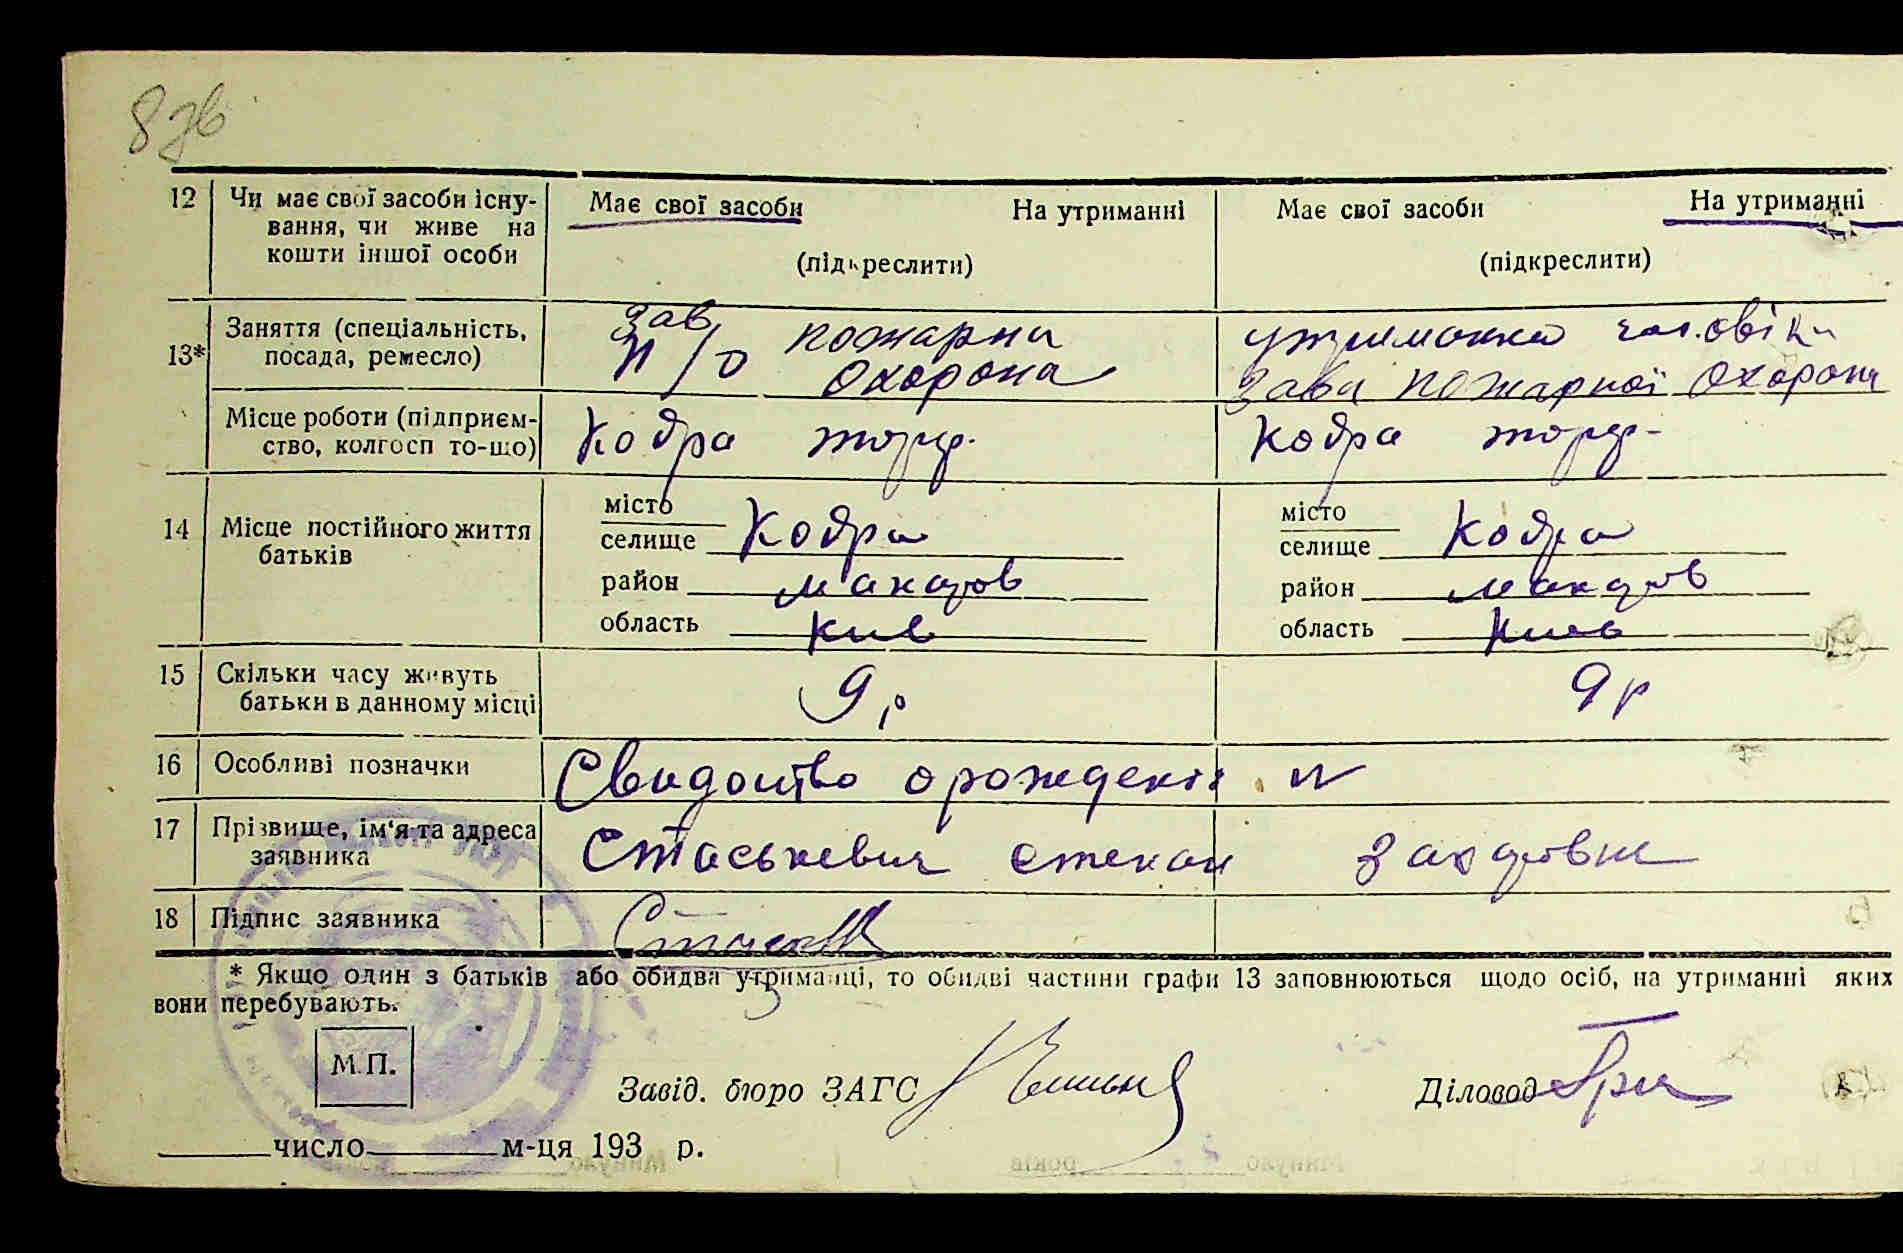 8 зв
12 Чи має свої засоби існу- Має свої засоби На утриманні Має свої засоби На утриманні
вання, чи живе на
кошти іншої особи (підкреслити) (підкреслити)
13* Заняття (спеціальність, зав пожарна утриманка
посада, ремесло) п/о охорона зава пожарної охорона
Місце роботи (підприєм- Кодра торф. Кодра торф-
ство, колгосп то-що)
14 Місце постійного життя місто місто
батьків селище Кодра селище Кодра
район макаров район макаров
область Киів область Киів
15 Скільки часу живуть 9 р 9 р
батьки в данному місці
16 Особливі позначки Свидоство о рожденія N
17 Прізвище, ім'я та адреса Стаськевич степан
заявника
18 Підпис заявника
* Якщо один з батьків або обидва утриманці, то обидві частини графи 13 заповнюються щодо осіб, на утриманні яких
вони перебувають.
М.П.
Завід. бюро ЗАГС Діловод
число м-ця 193 р.